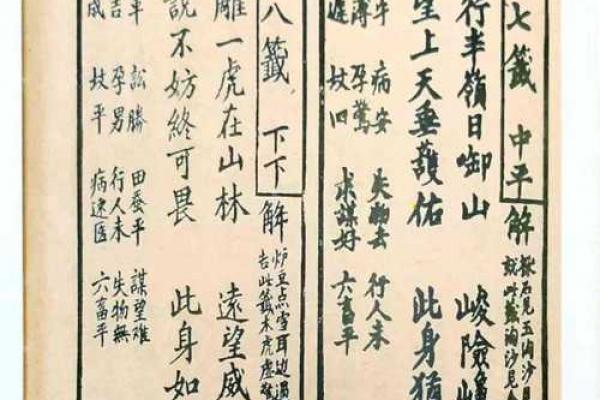 七籤 中平 解 採石見玉淘沙見
就此籤淘沙見
行半嶺日御山 峻險
望上天垂護佑 此身猶
平 病安 失物去 行人未
薄 孕驚
遲 妓旧 求謀好 六畜平
八籤 下下 解 炉豆点雪耳边過
吉此籤木虎虚
雕一虎在山林 遠望威
說不妨終可畏 此身如
平 訟勝 田蚕平 謀望难
吉 孕男 行人未 失物無
成 妓平 病速医 六畜平